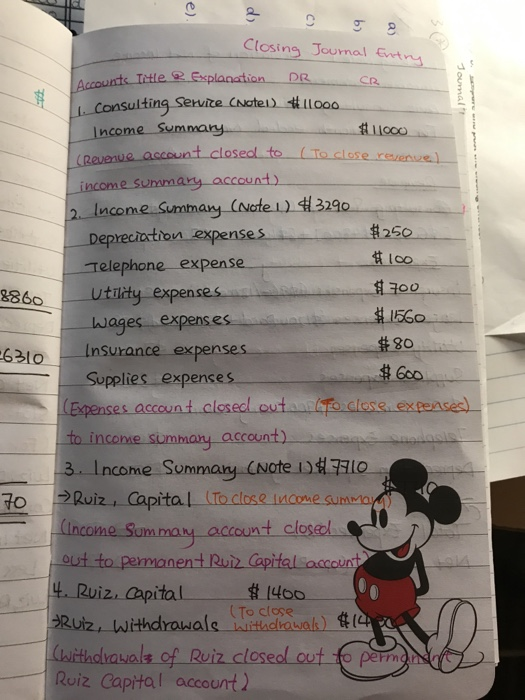 e) d) c) b a
Journal"
Closing Journal Entry
Accounts Title & Explanation DR CR
$
1. Consulting Service (Note1) $11000
Income Summary $11000
(Revenue account closed to (To close revenue)
income summary account)
2. Income Summary (Note 1) $3290
Depreciation expenses $250
Telephone expense $100
8860 Utility expenses $700
Wages expenses $1560
6310 Insurance expenses $80
Supplies expenses $600
(Expenses account closed out (To close expenses)
to income summary account)
3. Income Summary (Note 1) $7710
70 →Ruiz, Capital (To close income summary)
(Income Summary account closed
out to permanent Ruiz Capital account)
4. Ruiz, Capital $1400
→Ruiz, Withdrawals (To close withdrawals) $14
(Withdrawals of Ruiz closed out to permanent
Ruiz Capital account)